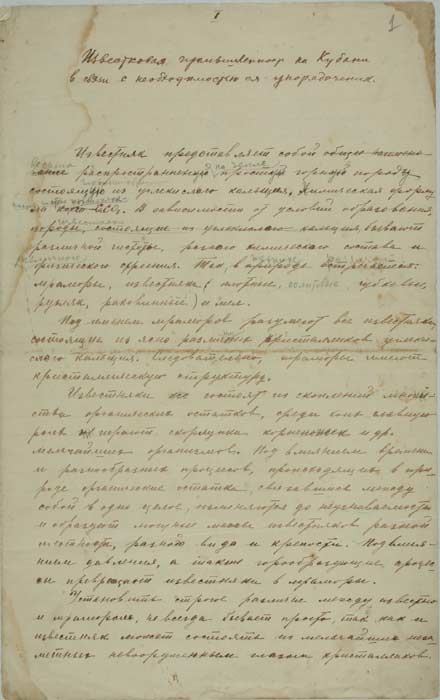 I
1
Известковая промышленность на Кубани
в связи с необходимостью ея упорядочения.
Известняк представляет собой
весьма на земле
распространенную простую горную породу
состоящую из углекислого кальция, химическая форму-
ла CaCO3. В зависимости от условий образования,
породы, состоящие из углекислого кальция, бывают
различной чистоты, разного химического состава и
физического строения. Так, в природе встречаются:
мраморы, известняки (плотные, губковые,
рухляк, раковинный) и мел.
Под именем мраморов разумеют все известняки,
состоящие из ясно различимых кристалликов углеки-
слого кальция. Следовательно мраморы имеют
кристаллическую структуру.
Известняки же состоят из скоплений множе-
ства органических остатков, среди коих главную
роль играют скорлупки корненожек и др.
мельчайших организмов. Под влиянием времени
и разнообразных процессов, происходящих в при-
роде органические остатки, связавшись между
собой в одно целое, изменяются до неузнаваемости
и образуют мощные массы известняков разной
плотности, разного вида и крепости. Под влия-
нием давления, а также горообразующих процес-
сы превращают известняки в мраморы.
Установить строгое различие между известняком
и мрамором, не всегда бывает просто, так как и
известняк может состоять из мельчайших неза-
метных невооруженным глазом кристалликов.